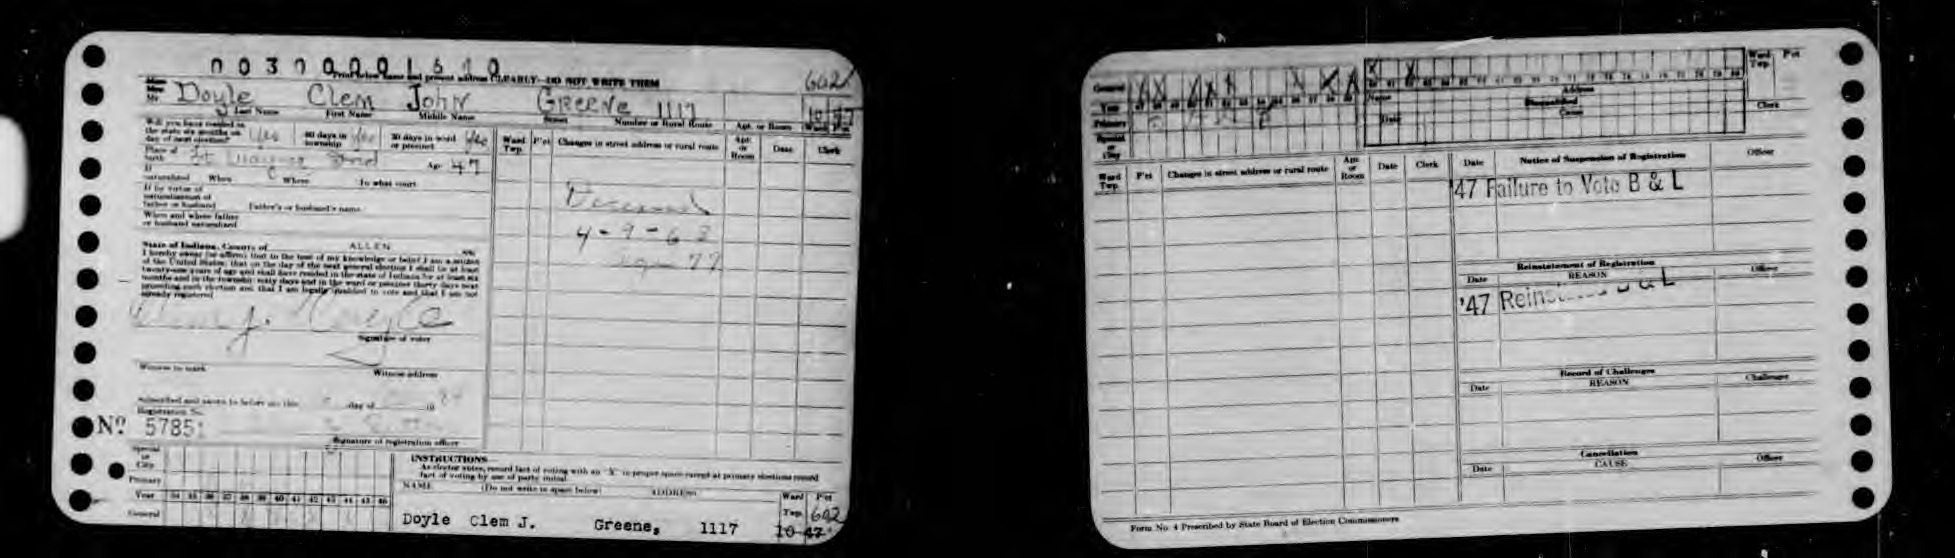 Print below name and present address CLEARLY—DO NOT WRITE THEM
642
Miss
Mrs.
Mr. Doyle Clem John Greene 1117
Last Name First Name Middle Name Street Number or Rural Route Apt. or Room Ward Pct
Will you have resided in the state six months on day of next election? Yes 60 days in township Yes 30 days in ward or precinct Yes
Place of birth Ind Age 47
If naturalized When Where In what court
If by virtue of naturalization of father or husband Father's or husband's name
When and where father or husband naturalized
Ward Twp. P'ct Changes in street address or rural route Apt. or Room Date Clerk
Deceased
4-9-63
age 77
State of Indiana, County of ALLEN, SS:
I hereby swear (or affirm) that to the best of my knowledge or belief I am a citizen
of the United States; that on the day of the next general election I shall be at least
twenty-one years of age and shall have resided in the state of Indiana for at least six
months and in the township sixty days and in the ward or precinct thirty days next
preceding such election and that I am legally qualified to vote and that I am not
already registered
Clem J. Doyle
Signature of voter
Witness to mark Witness address
Subscribed and sworn to before me this day of 19
Registration No.
Nº 5785
Signature of registration officer
Special or City
Primary
Year 34 35 36 37 38 39 40 41 42 43 44 45 46
General
INSTRUCTIONS
As elector votes, record fact of voting with an "X" in proper space except at primary elections record
fact of voting by use of party initial.
NAME (Do not write in space below) ADDRESS Ward Twp. P'ct
Doyle Clem J. Greene, 1117 10-47 642
General
Year
Primary
Special or City
Name Address
Disqualified
Date Cause
Ward Twp. P'ct
Clerk
Ward Twp. P'ct Changes in street address or rural route Apt. or Room Date Clerk
Date Notice of Suspension of Registration Officer
'47 Failure to Vote B & L
Reinstatement of Registration
Date REASON Officer
'47 B & L
Record of Challenges
Date REASON Challenger
Cancellation
Date CAUSE Officer
Form No. 4 Prescribed by State Board of Election Commissioners